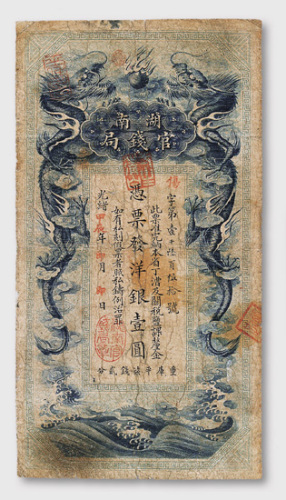 湖南
官錢局
字第壹千柒百伍拾號
此票准完本省丁漕及關稅鹽課釐金
憑票發洋銀壹圓
如有私刻假票者照私鑄例治罪
光緒甲辰年 月 日
重庫平柒錢貳分